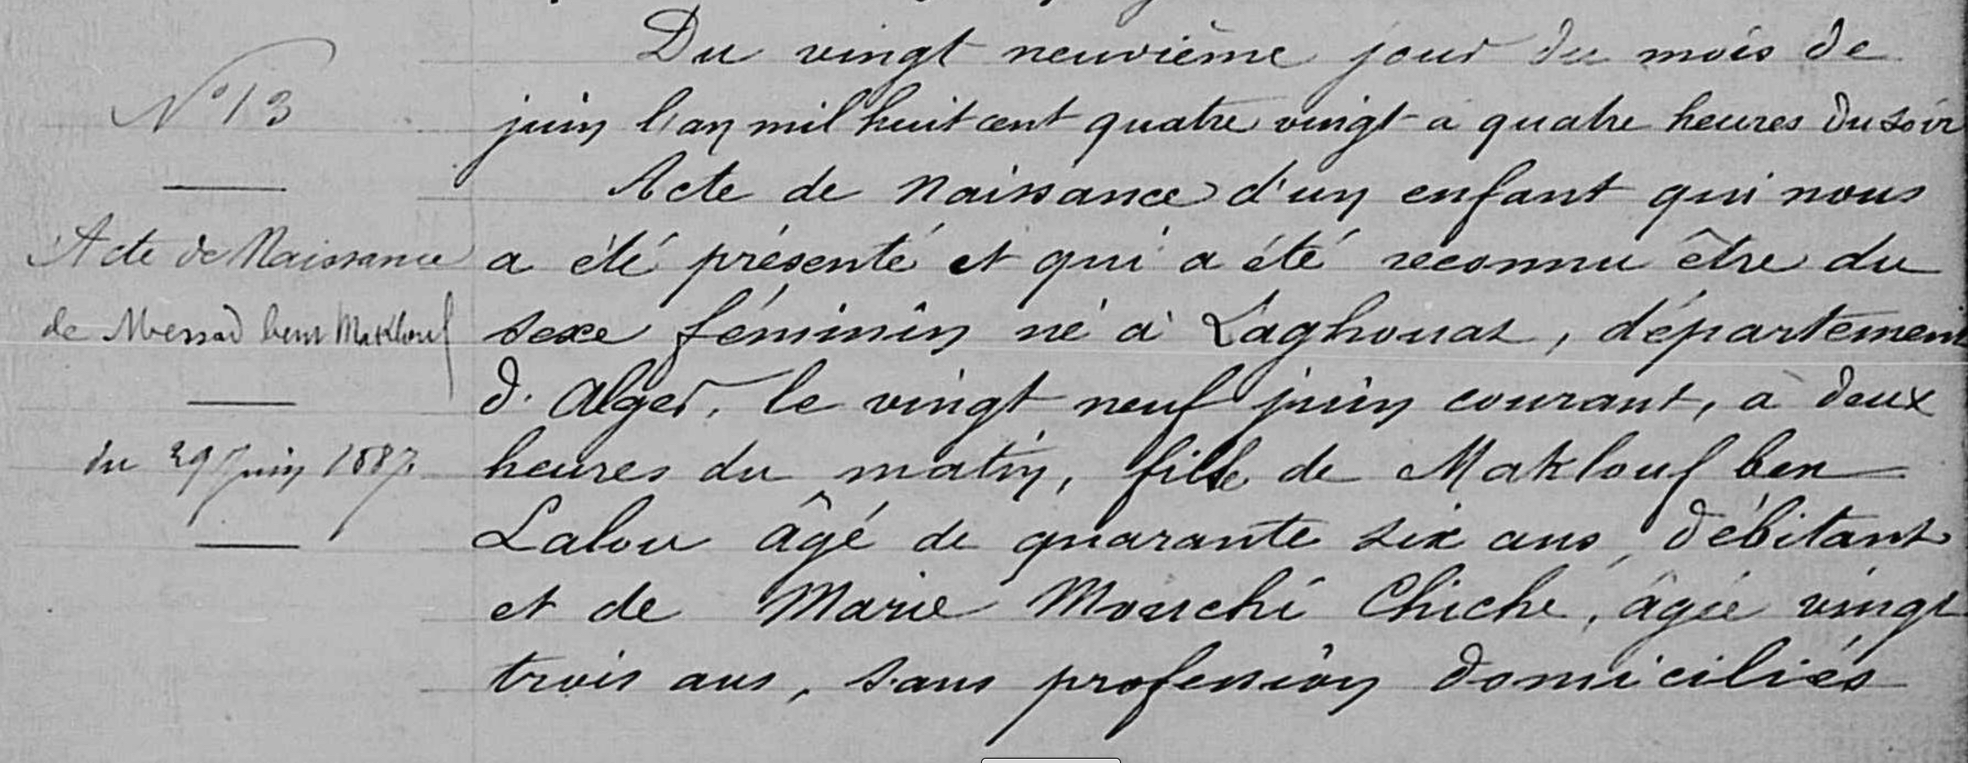 Du vingt neuvième jour du mois de
juin l'an mil huit cent quatre vingt à quatre heures du soir
Acte de naissance d'un enfant qui nous
a été présenté et qui a été reconnu être du
sexe féminin né à Laghouat, département
d'Alger, le vingt neuf juin courant, à deux
heures du matin, fille de Maklouf ben
Lalou âgé de quarante six ans, débitant
et de Marie Mouchi Chiche, âgée vingt
trois ans, sans profession domiciliés
N° 13
Acte de Naissance
de Messad bent Makhlouf
du 29 Juin